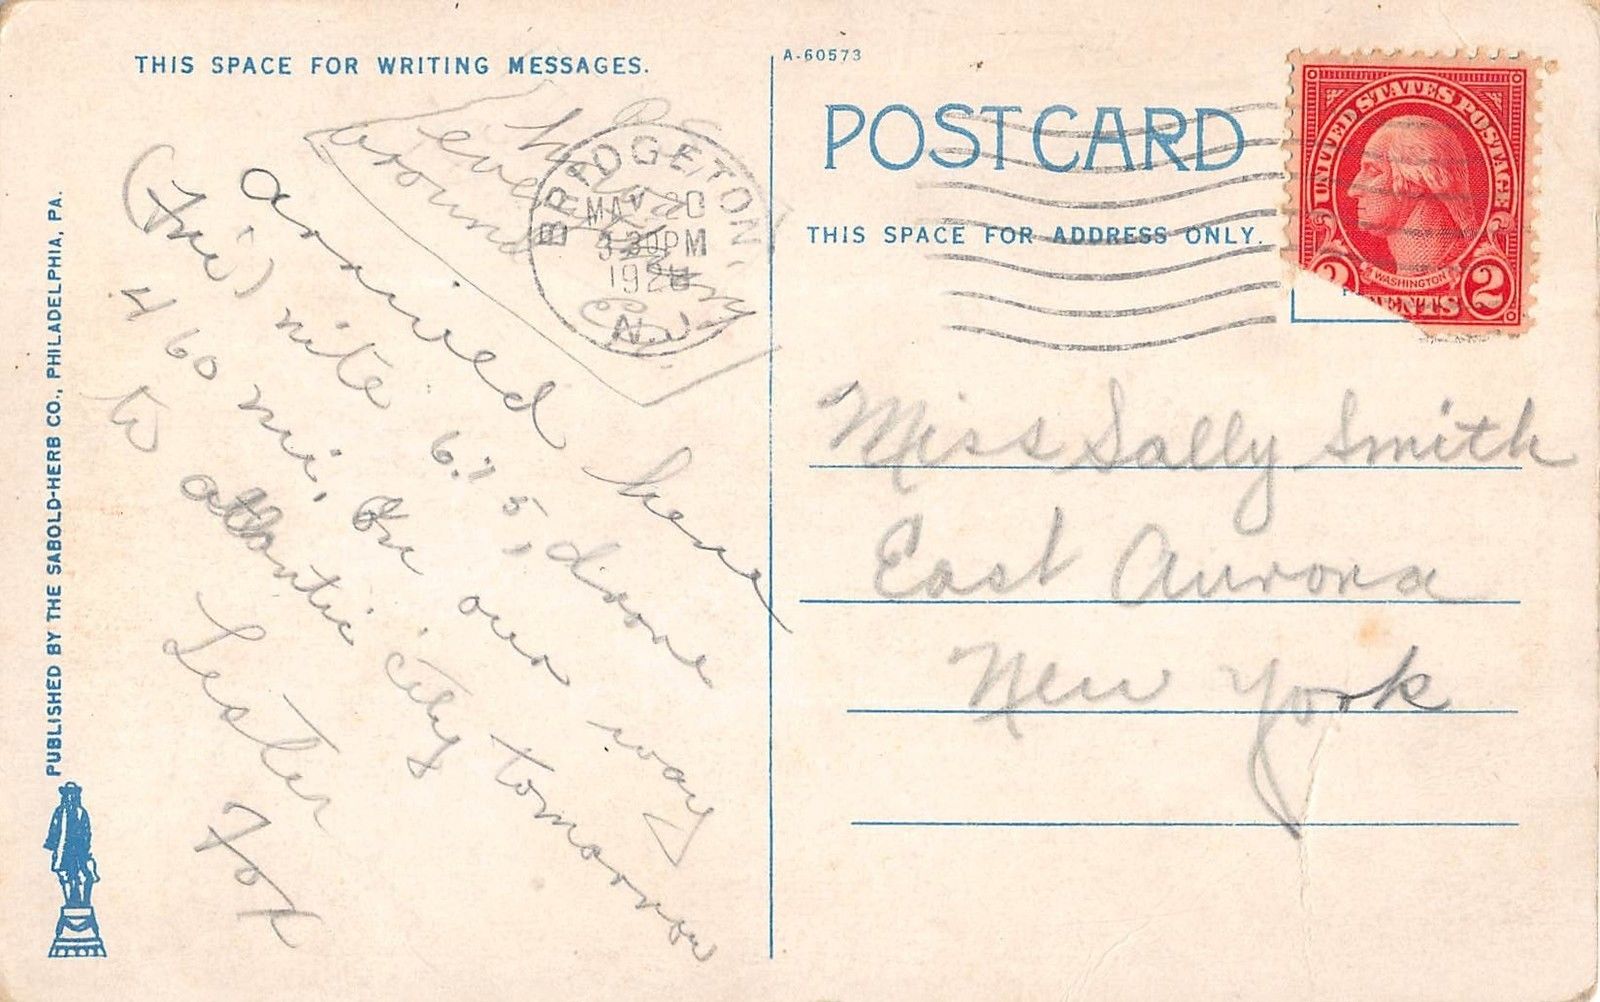 THIS SPACE FOR WRITING MESSAGES.
A-60573
POST CARD
THIS SPACE FOR ADDRESS ONLY.
UNITED STATES POSTAGE
WASHINGTON
2 CENTS 2
BRIDGETON,
MAY 20
PM
192
N.J.
every
around
arrived here
(Fri) nite 6:15, drove
460 mi, On our way
to atlantic City tomorrow
Lester
Fox
Miss Sally Smith
East Aurora
New York
PUBLISHED BY THE SABOLD-HERB CO., PHILADELPHIA, PA.